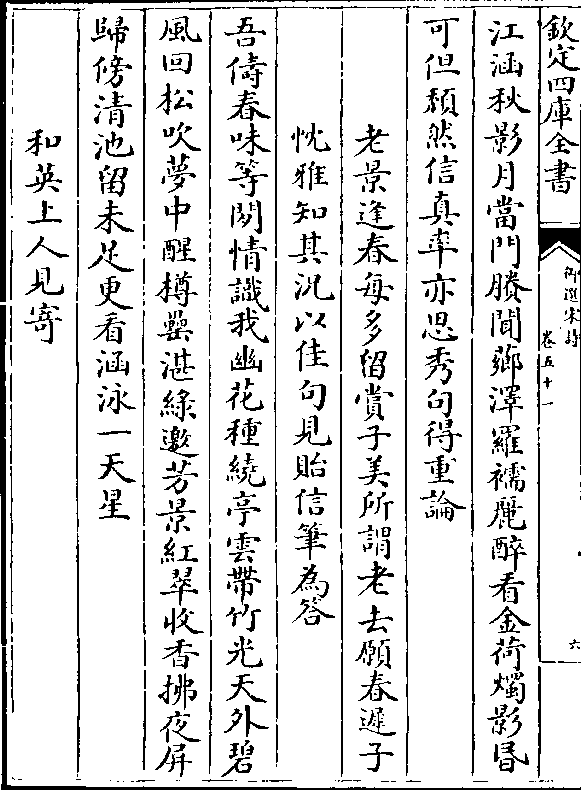 欽定四庫全書
御選宋詩
卷五十一
六
江涵秋影月當門賸聞薌澤羅襦麗醉看金荷燭影昬
可但頽然信真率亦思秀句得重論
老景逢春每多留賞子美所謂老去願春遲子
忱雅知其況以佳句見貽信筆為答
吾儔春味等閑情識我幽花種繞亭雲帶竹光天外碧
風回松吹夢中醒樽罍湛綠邀芳景紅翠收香拂夜屏
歸傍清池留未足更看涵泳一天星
和英上人見寄